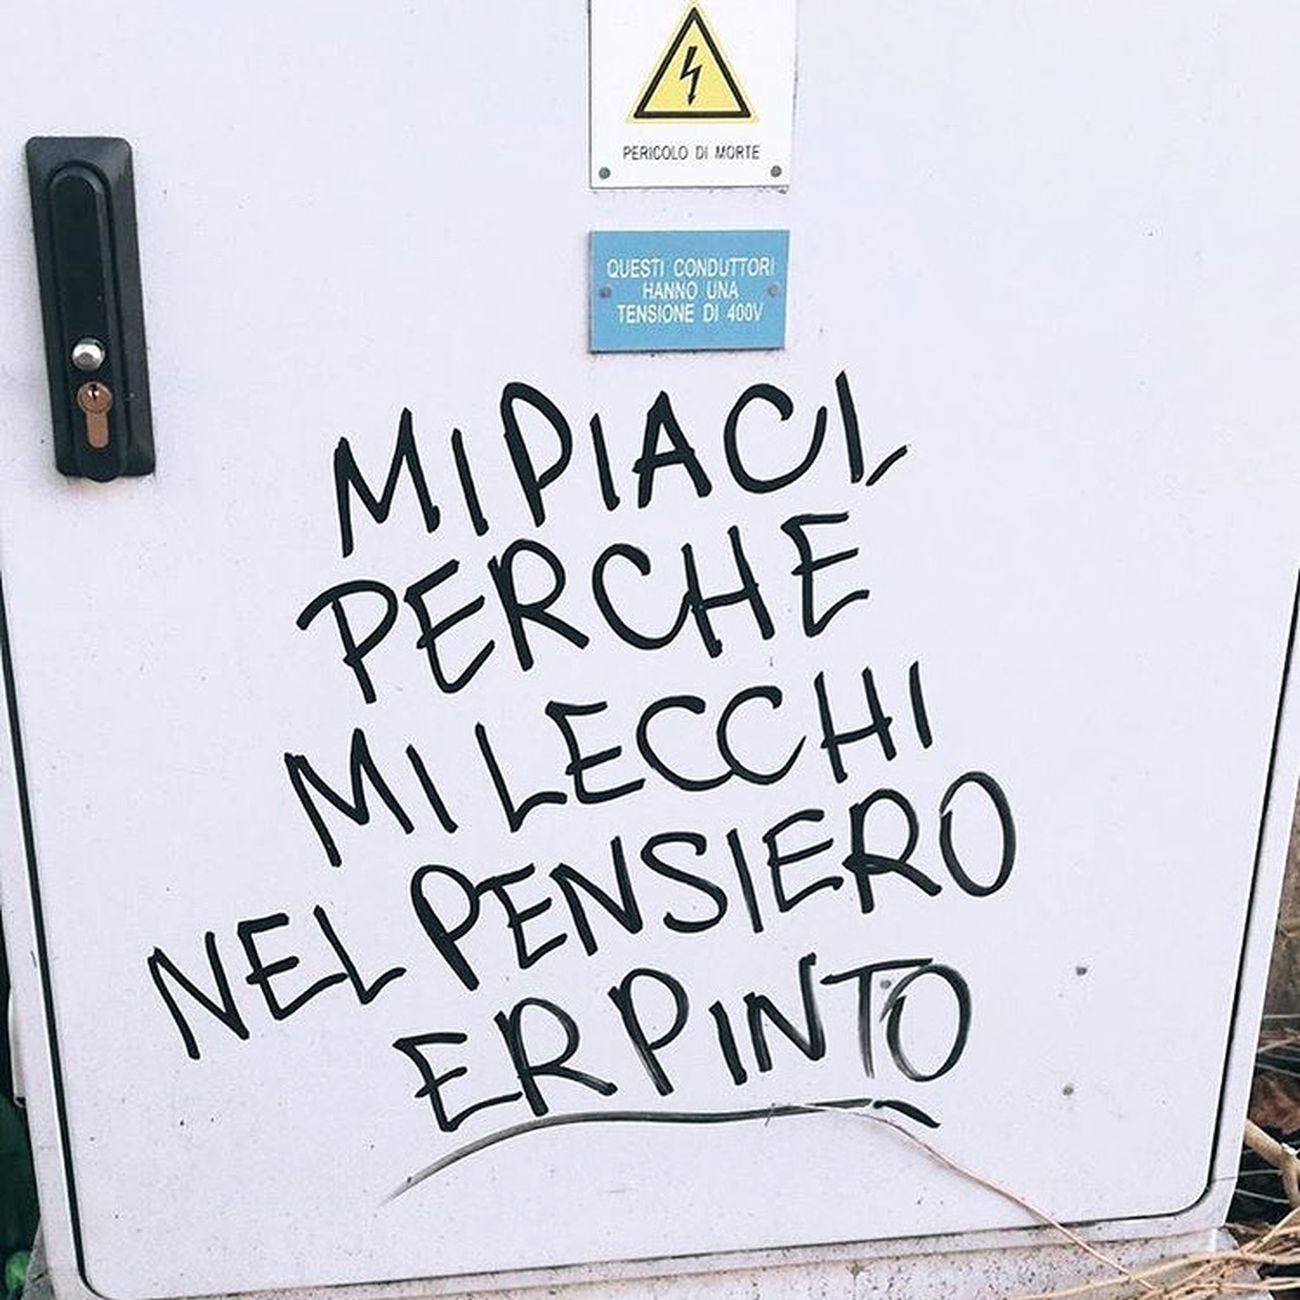 PERICOLO DI MORTE
QUESTI CONDUTTORI
HANNO UNA
TENSIONE DI 400V
MI PIACI,
PERCHE
MI LECCHI
NEL PENSIERO
ER PINTO